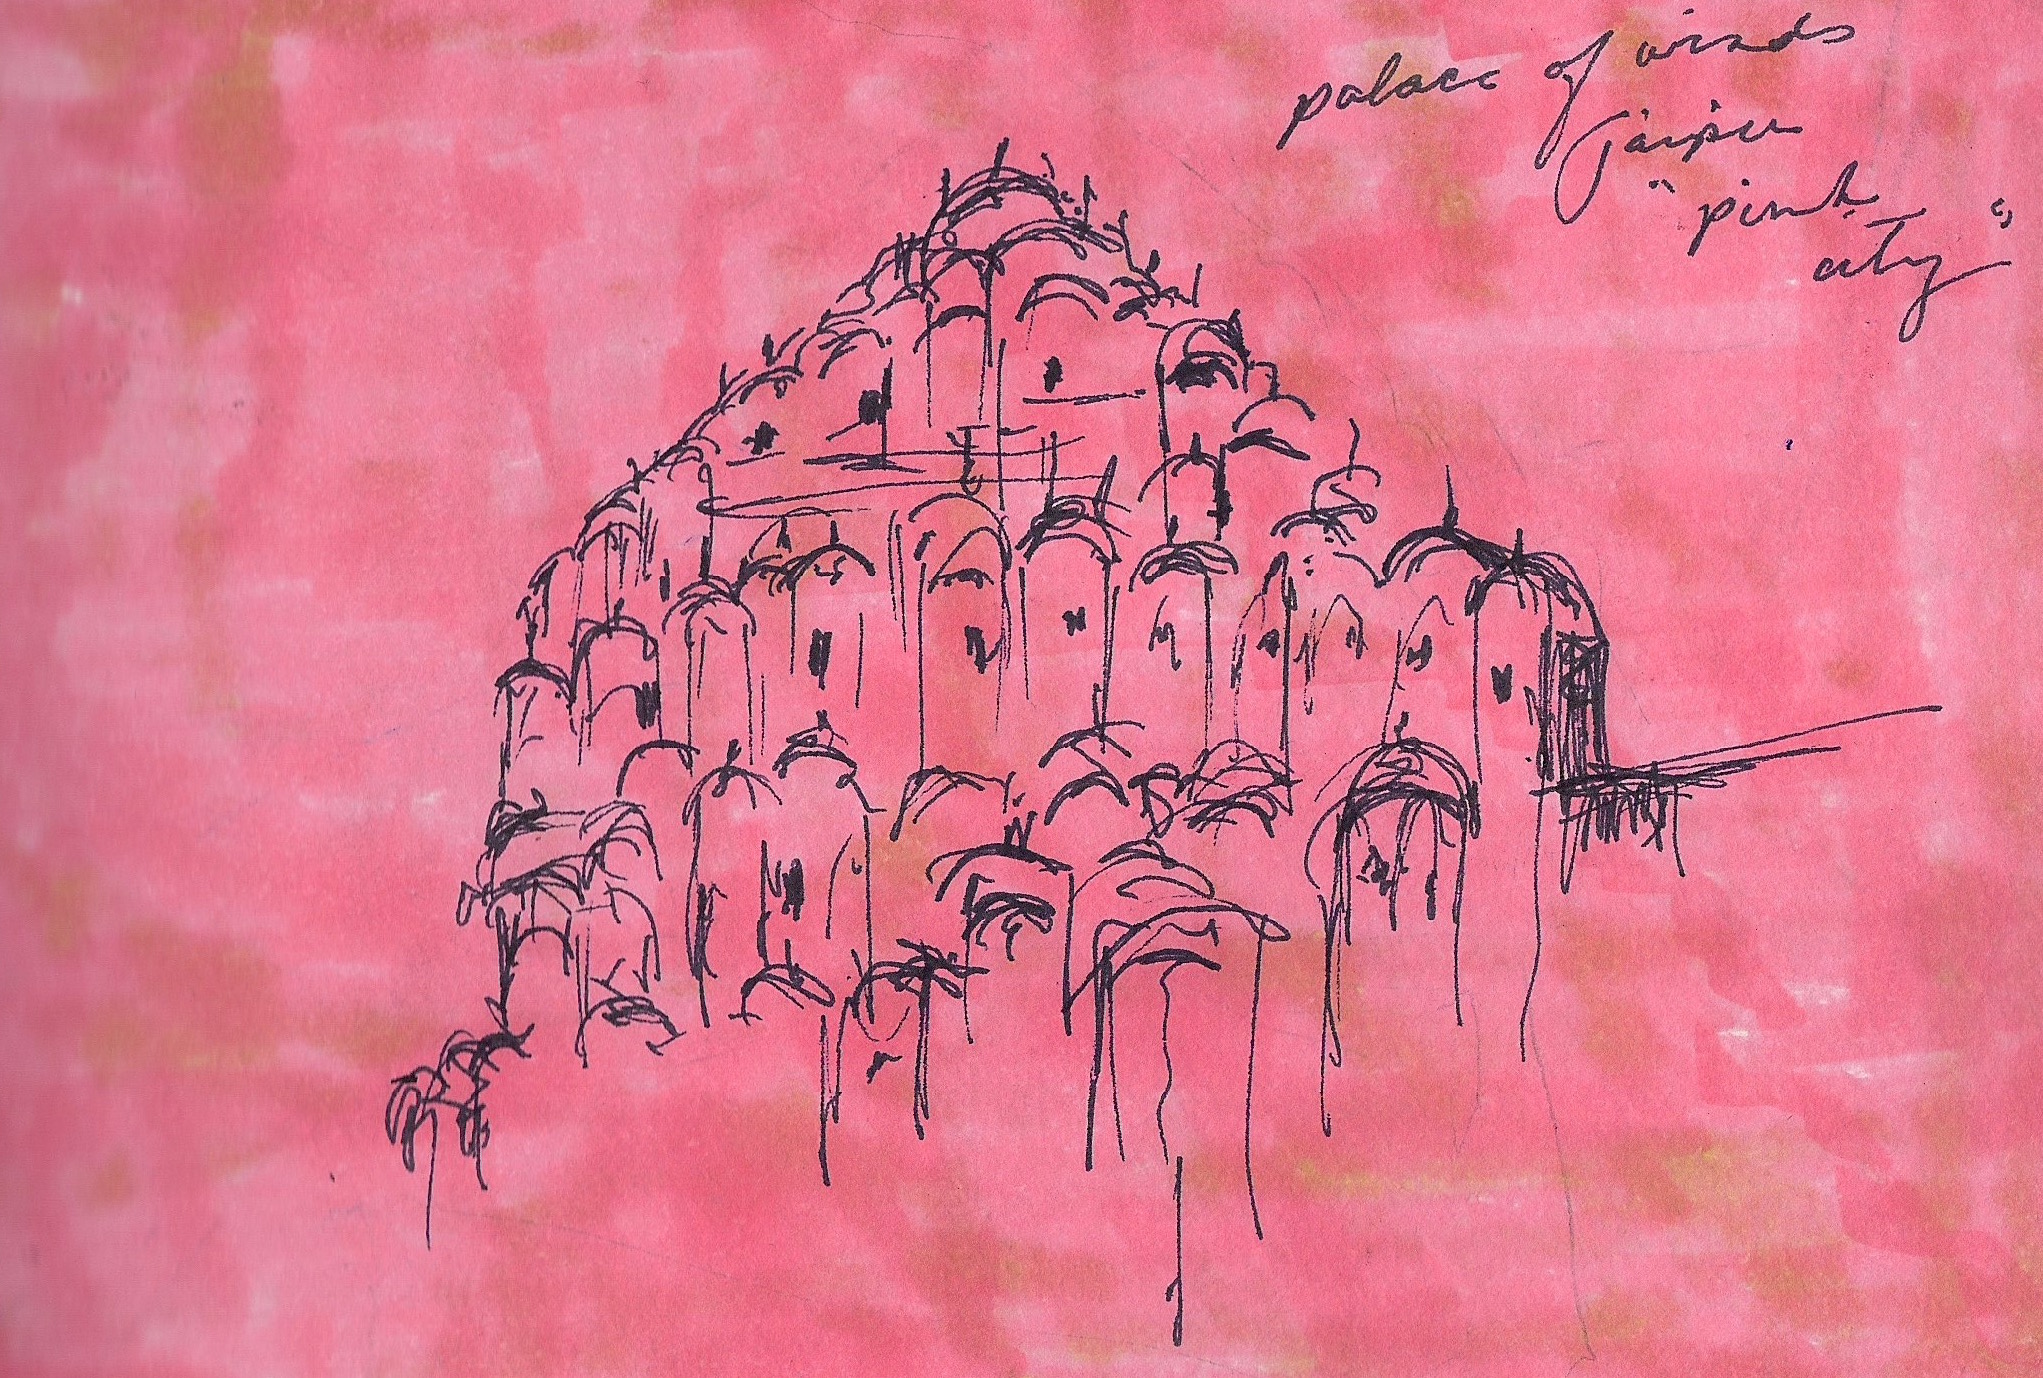 palace of winds
Jaipur
"pink
city"